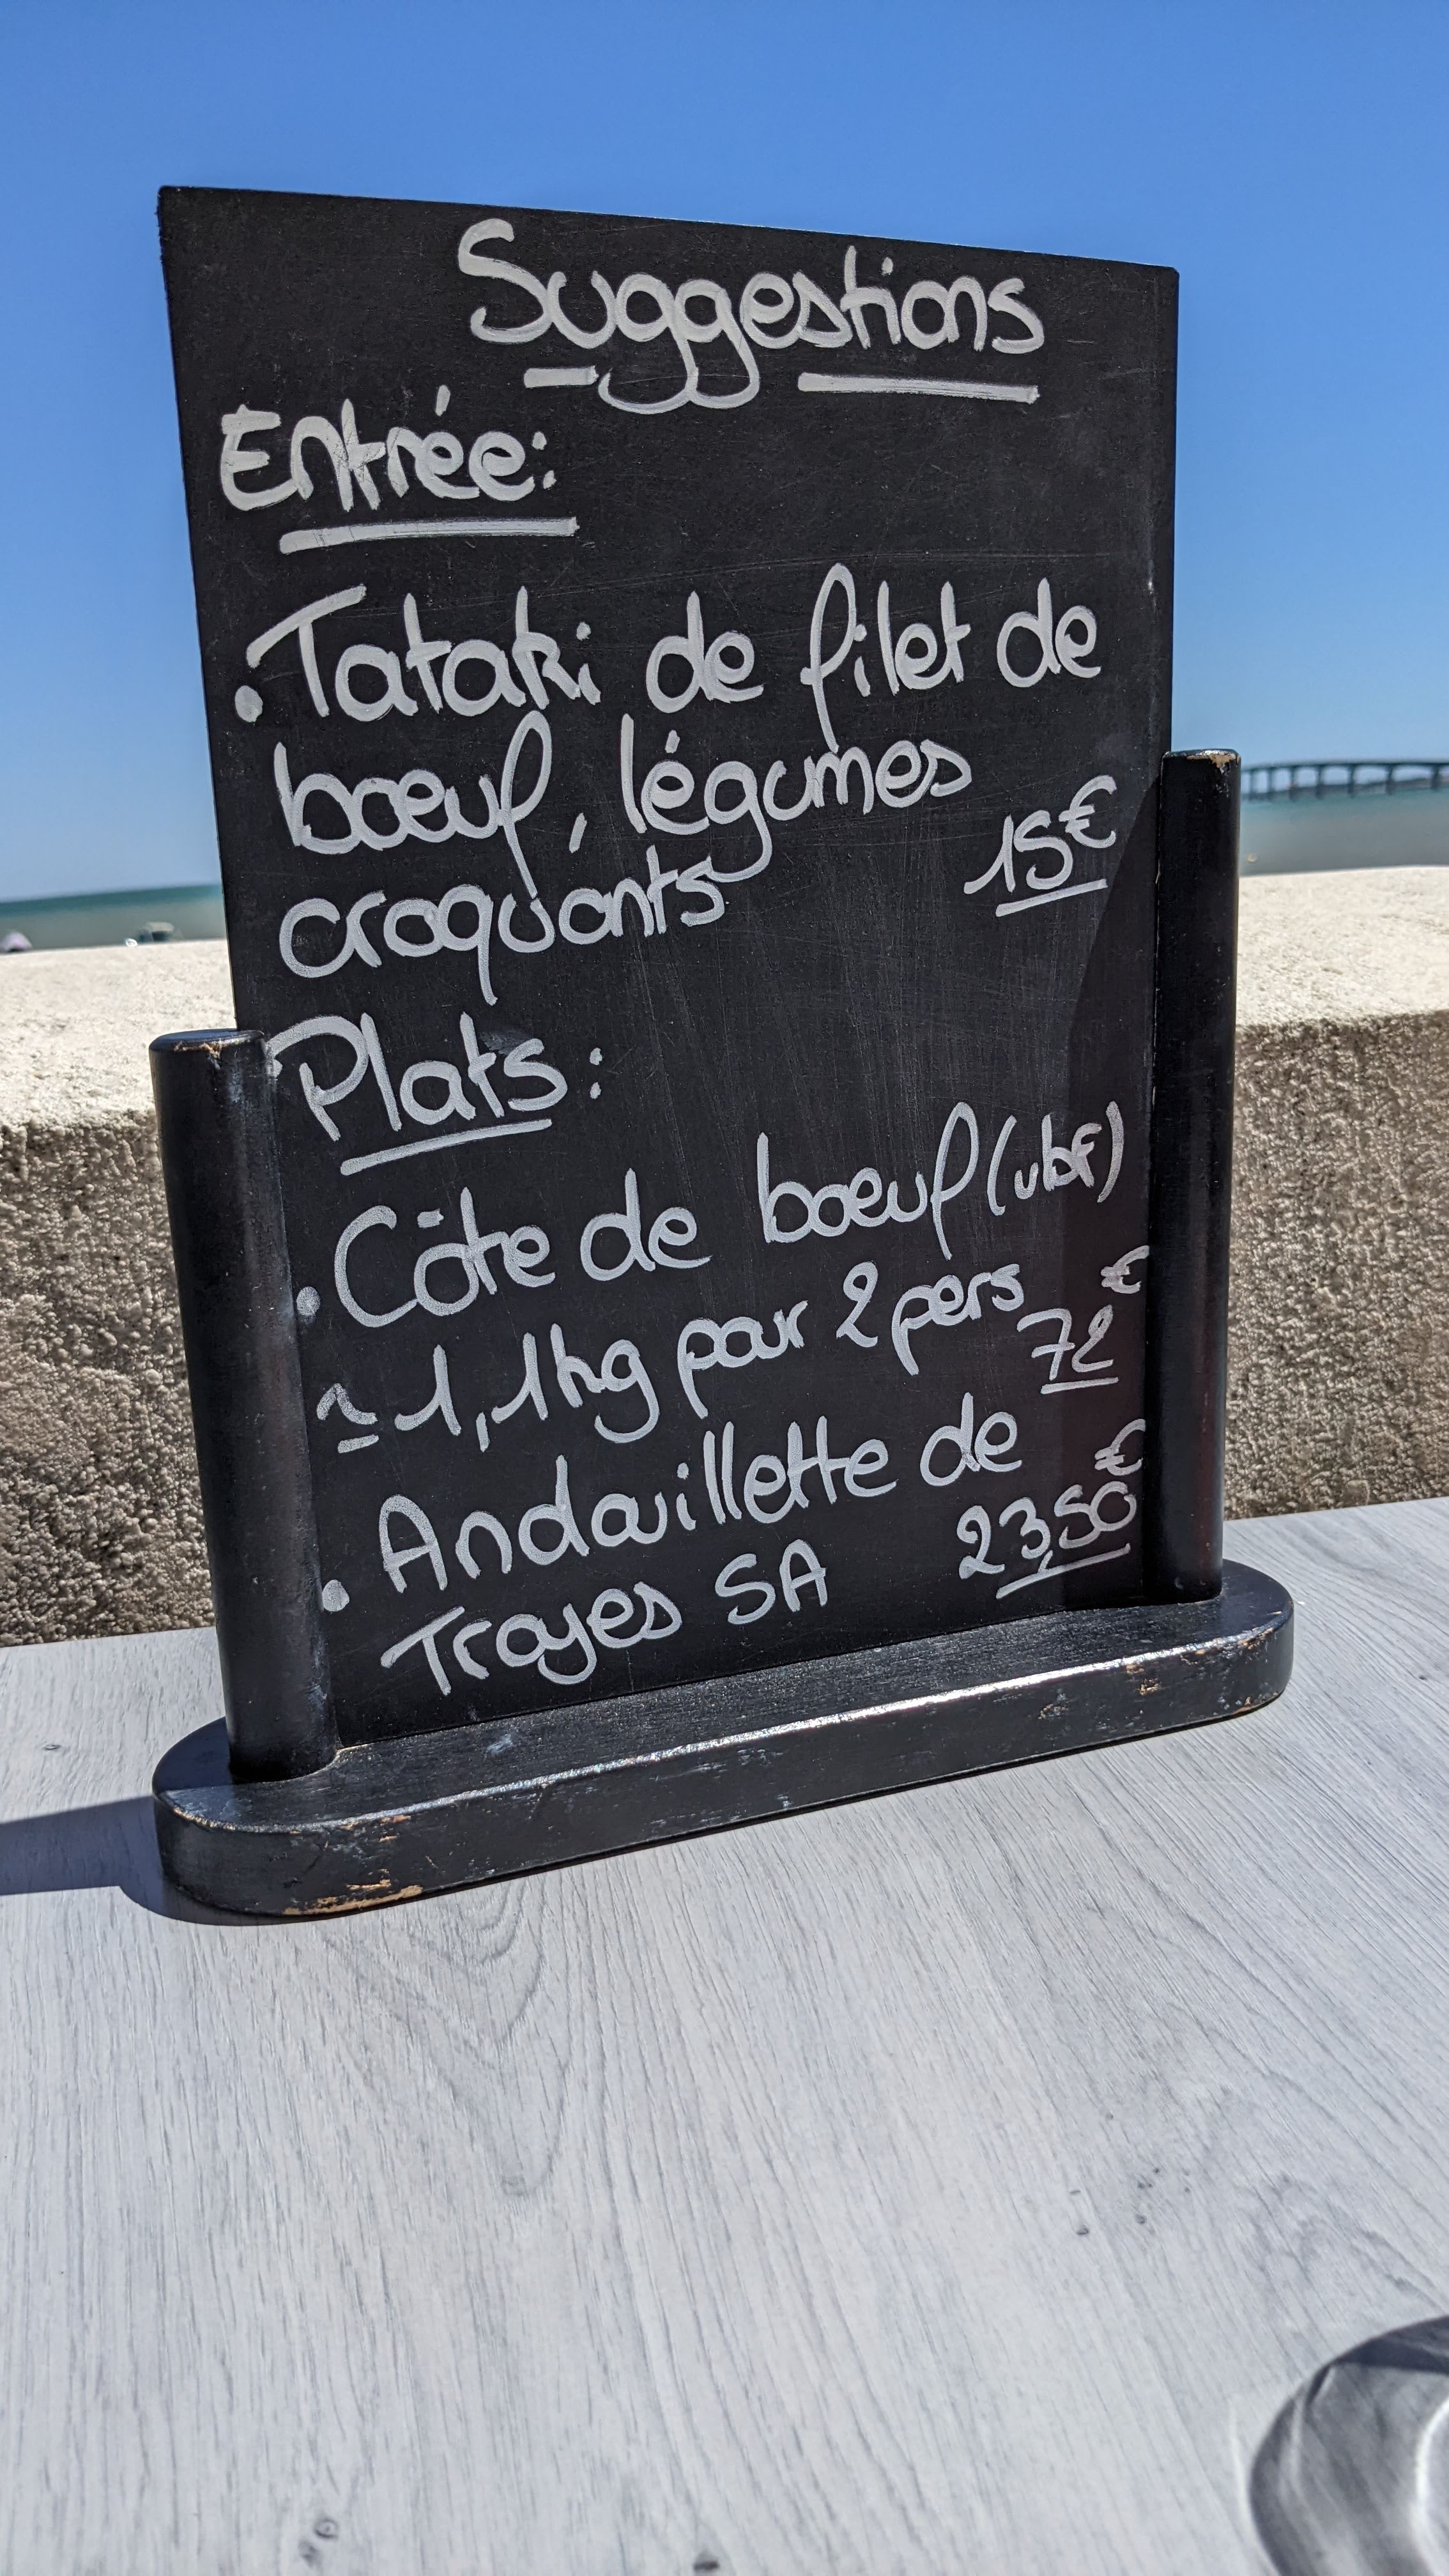 Suggestions
Entrée:
• Tataki de filet de
bœuf, légumes
croquants 15€
Plats :
• Côte de bœuf (vbf)
≃ 1,1kg pour 2 pers 72€
• Andouillette de
Troyes 5A 23,50€